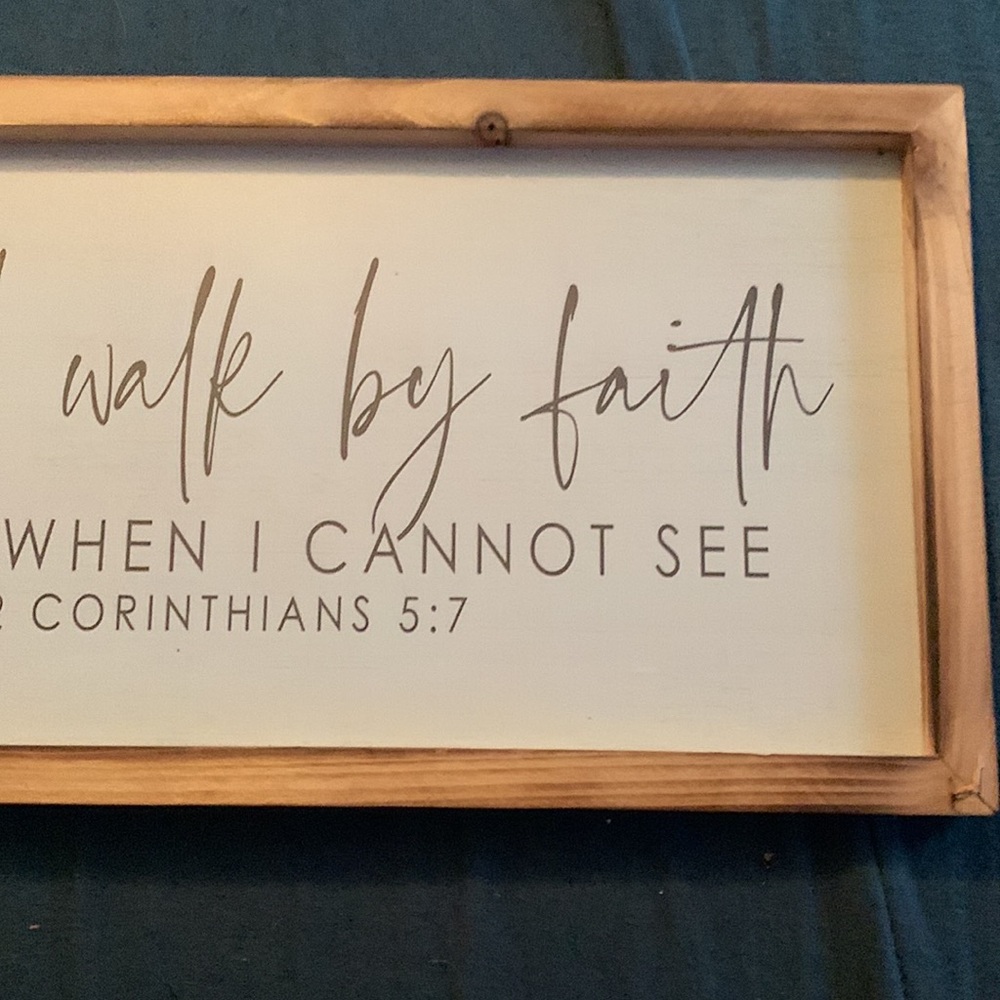 walk by faith
WHEN I CANNOT SEE
2 CORINTHIANS 5:7